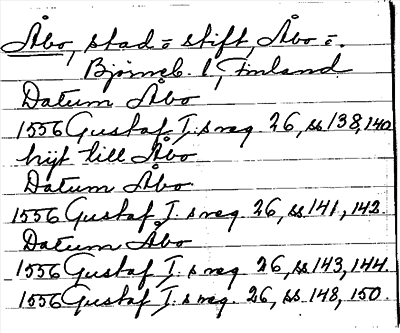 Åbo, stad o stift, Åbo o.
Björneb. l., Finland
Datum Åbo
1556 Gustaf I. s reg. 26, ss 138, 140
hijt till Åbo
Datum Åbo
1556 Gustaf I. s reg. 26, ss 141, 142.
Datum Åbo
1556 Gustaf I. s reg. 26, ss 143, 144.
1556 Gustaf I. s reg. 26, ss 148, 150.